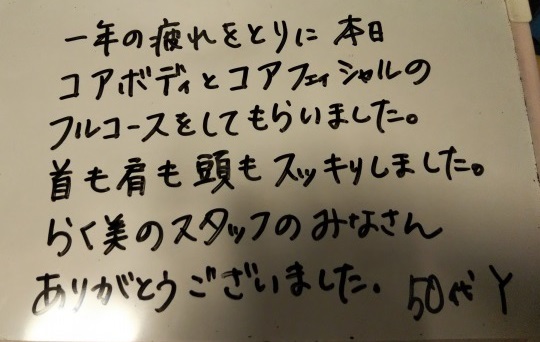 一年の疲れをとりに 本日
コアボディとコアフェイシャルの
フルコースをしてもらいました。
首も肩も頭もスッキリしました。
らく美のスタッフのみなさん
ありがとうございました. 50代 Y